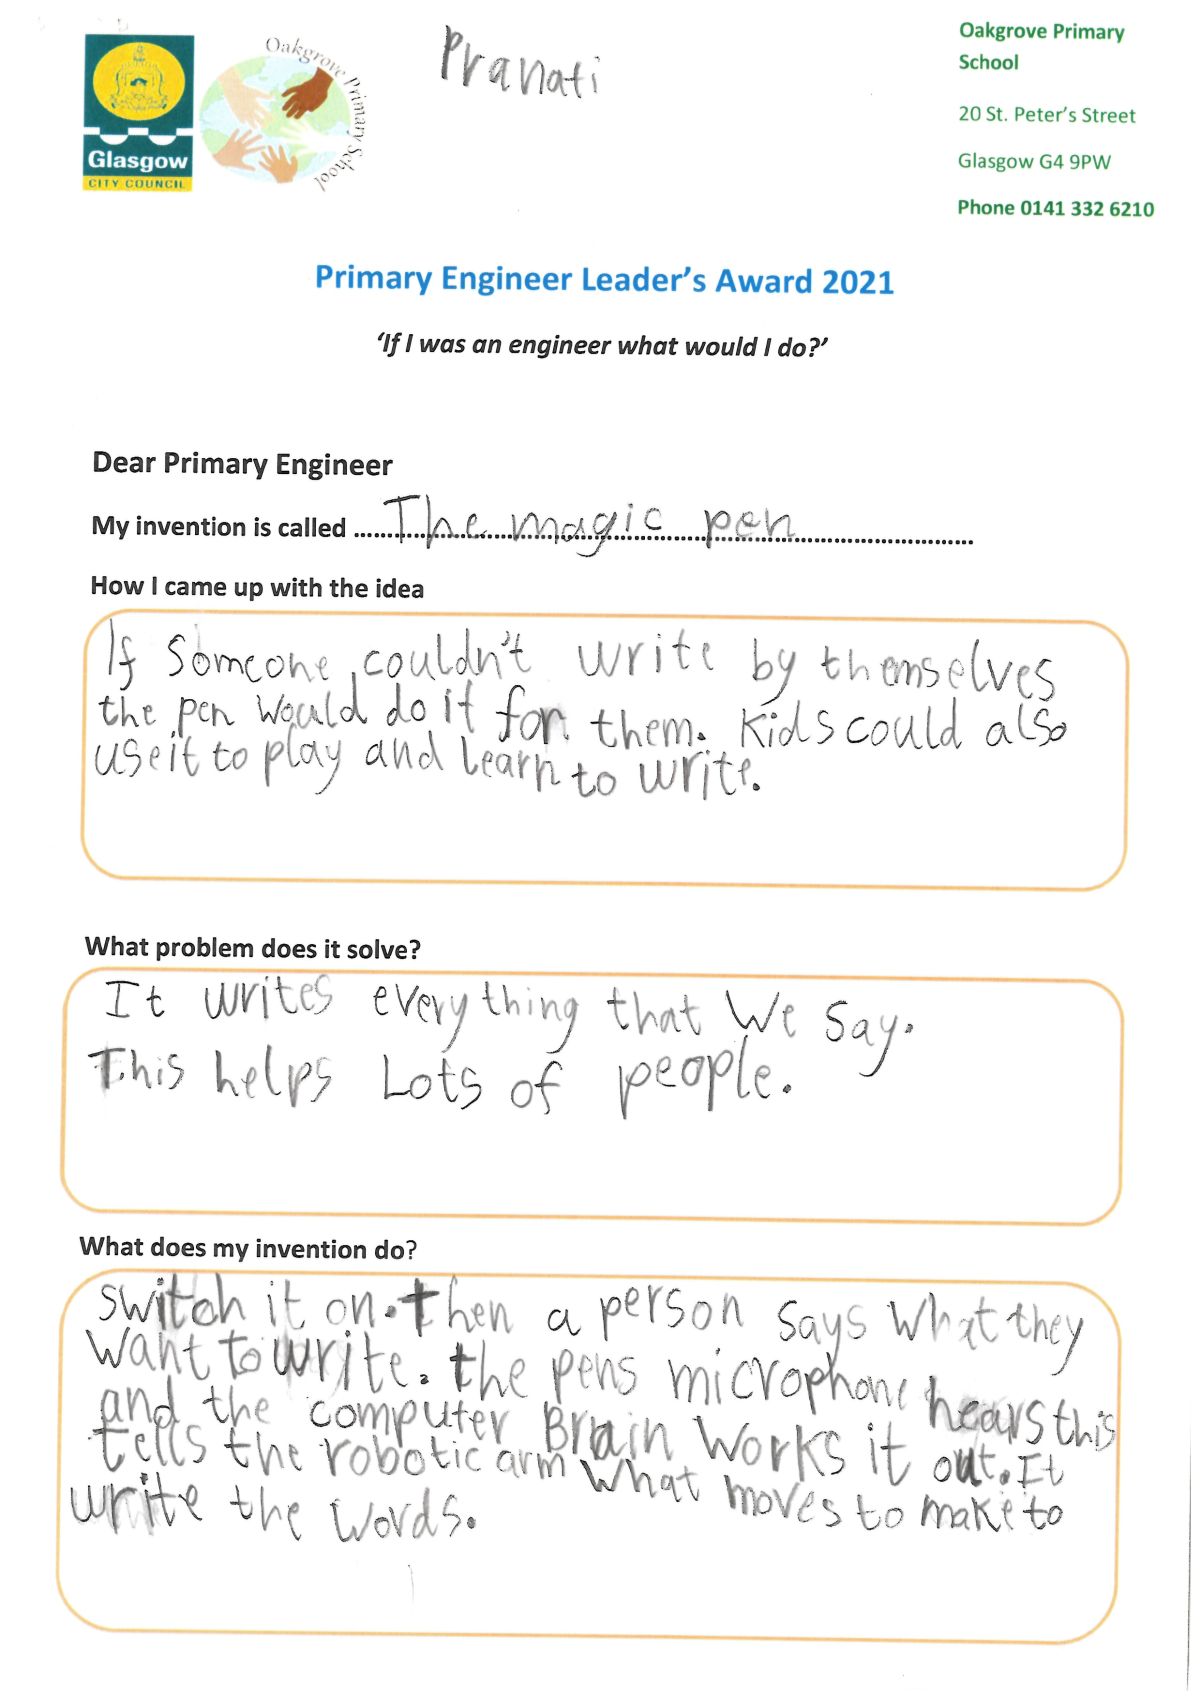 Glasgow
CITY COUNCIL
Oakgrove Primary School
Pranati
Oakgrove Primary
School
20 St. Peter's Street
Glasgow G4 9PW
Phone 0141 332 6210
Primary Engineer Leader's Award 2021
'If I was an engineer what would I do?'
Dear Primary Engineer
My invention is called ......The magic pen......
How I came up with the idea
If Someone couldn't write by themselves
the pen would do it for them. Kids could also
use it to play and learn to write.
What problem does it solve?
It writes everything that We Say.
This helps Lots of people.
What does my invention do?
Switch it on. then a person says What they
Want to write. the pens microphone hears this
and the computer Brain Works it out. It
tells the robotic arm What moves to make to
write the words.